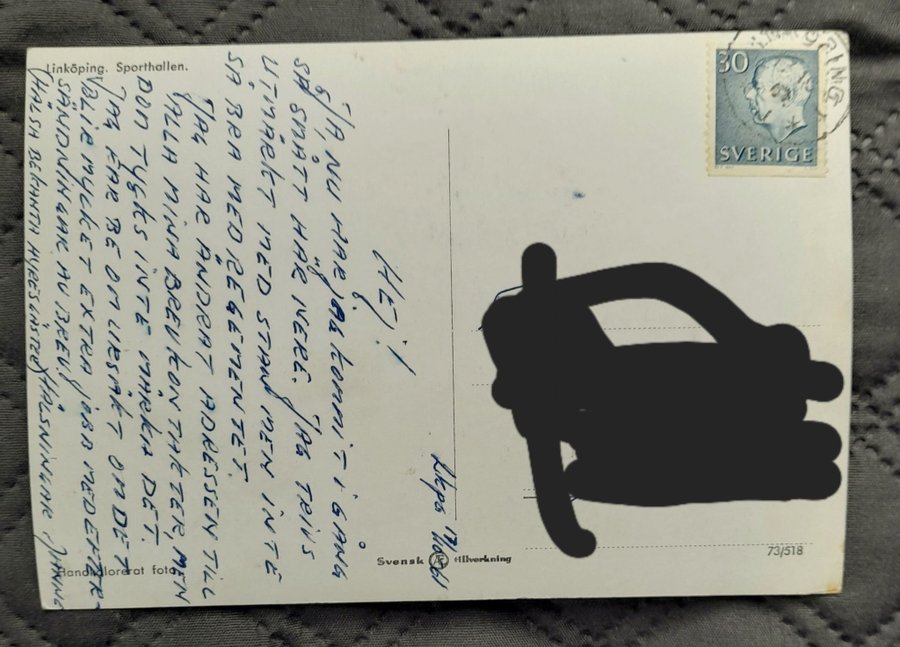 Linköping. Sporthallen.
30
SVERIGE
Lkpg
HEJ!
JA NU HAR JAG KOMMIT IGÅNG
SÅ SMÅTT HÄR NERE. JAG TRIVS
UTMÄRKT MED STAN MEN INTE
SÅ BRA MED REGEMENTET.
JAG HAR ÄNDRAT ADRESSEN TILL
ALLA MINA BREVKONTAKTER, MEN
DOM TYCKS INTE MÄRKA DET.
JAG FÅR BE OM URSÄKT OM DET
BLIR MYCKET EXTRA JOBB MED EFTER-
SÄNDNINGAR AV BREV.
(HÄLSA HYRESGÄSTER) HÄLSNINGAR JANNE
Handkolorerat foto
Svensk tillverkning
73/518